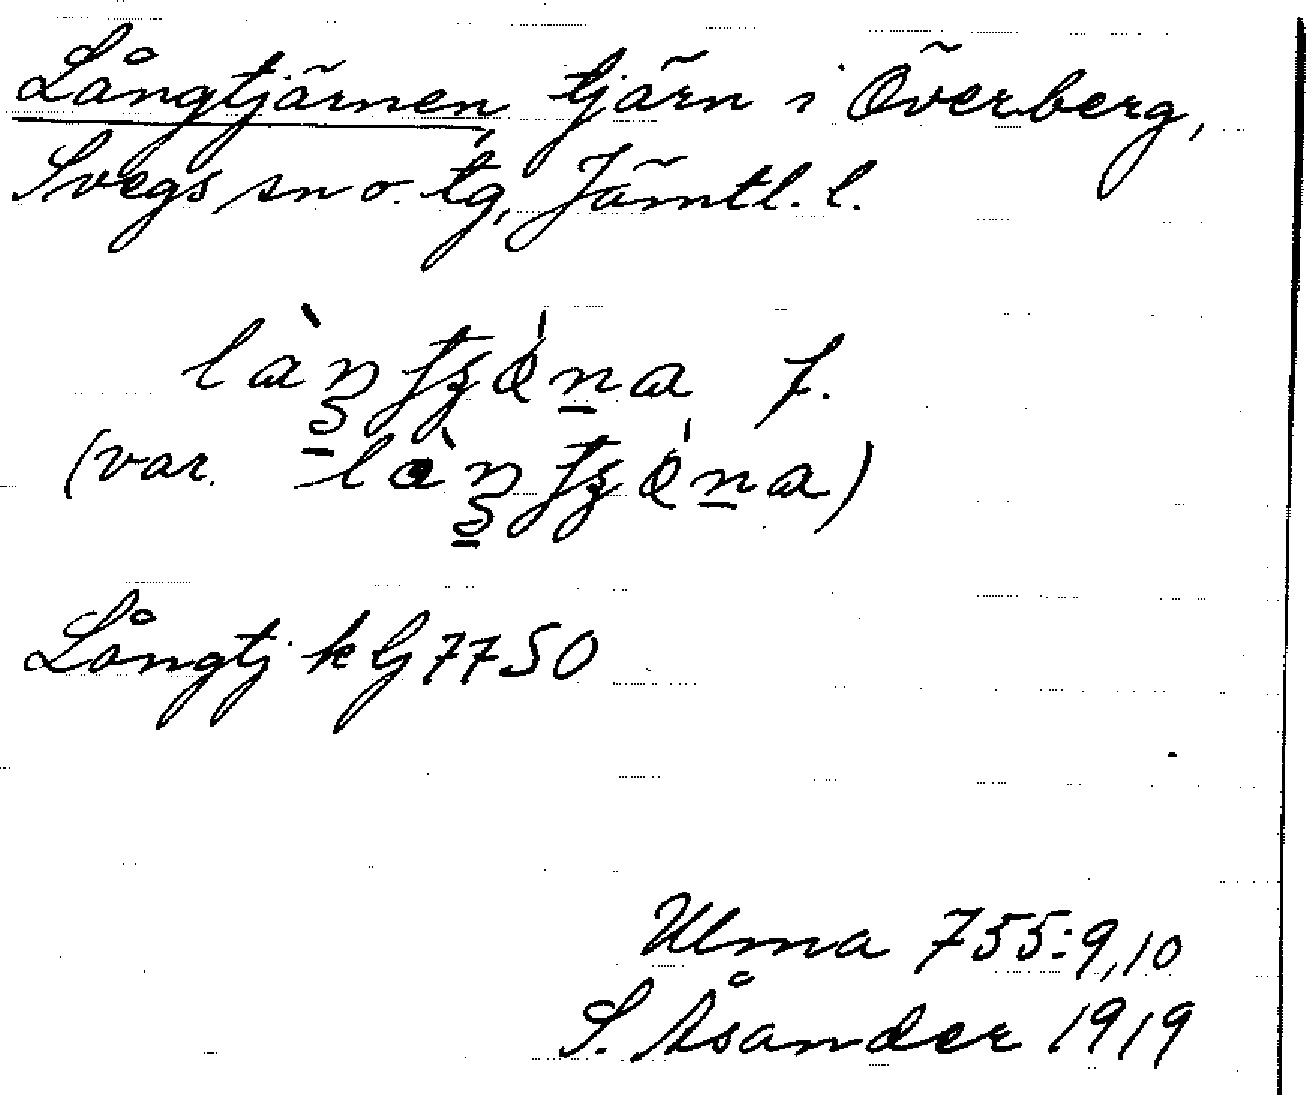 Långtjärnen, tjärn i Överberg,
Svegs sn o. tg, Jämtl. l.
f.
(var.
Långtj. k G 7750
Ulma 755:9,10
S. Åsander 1919